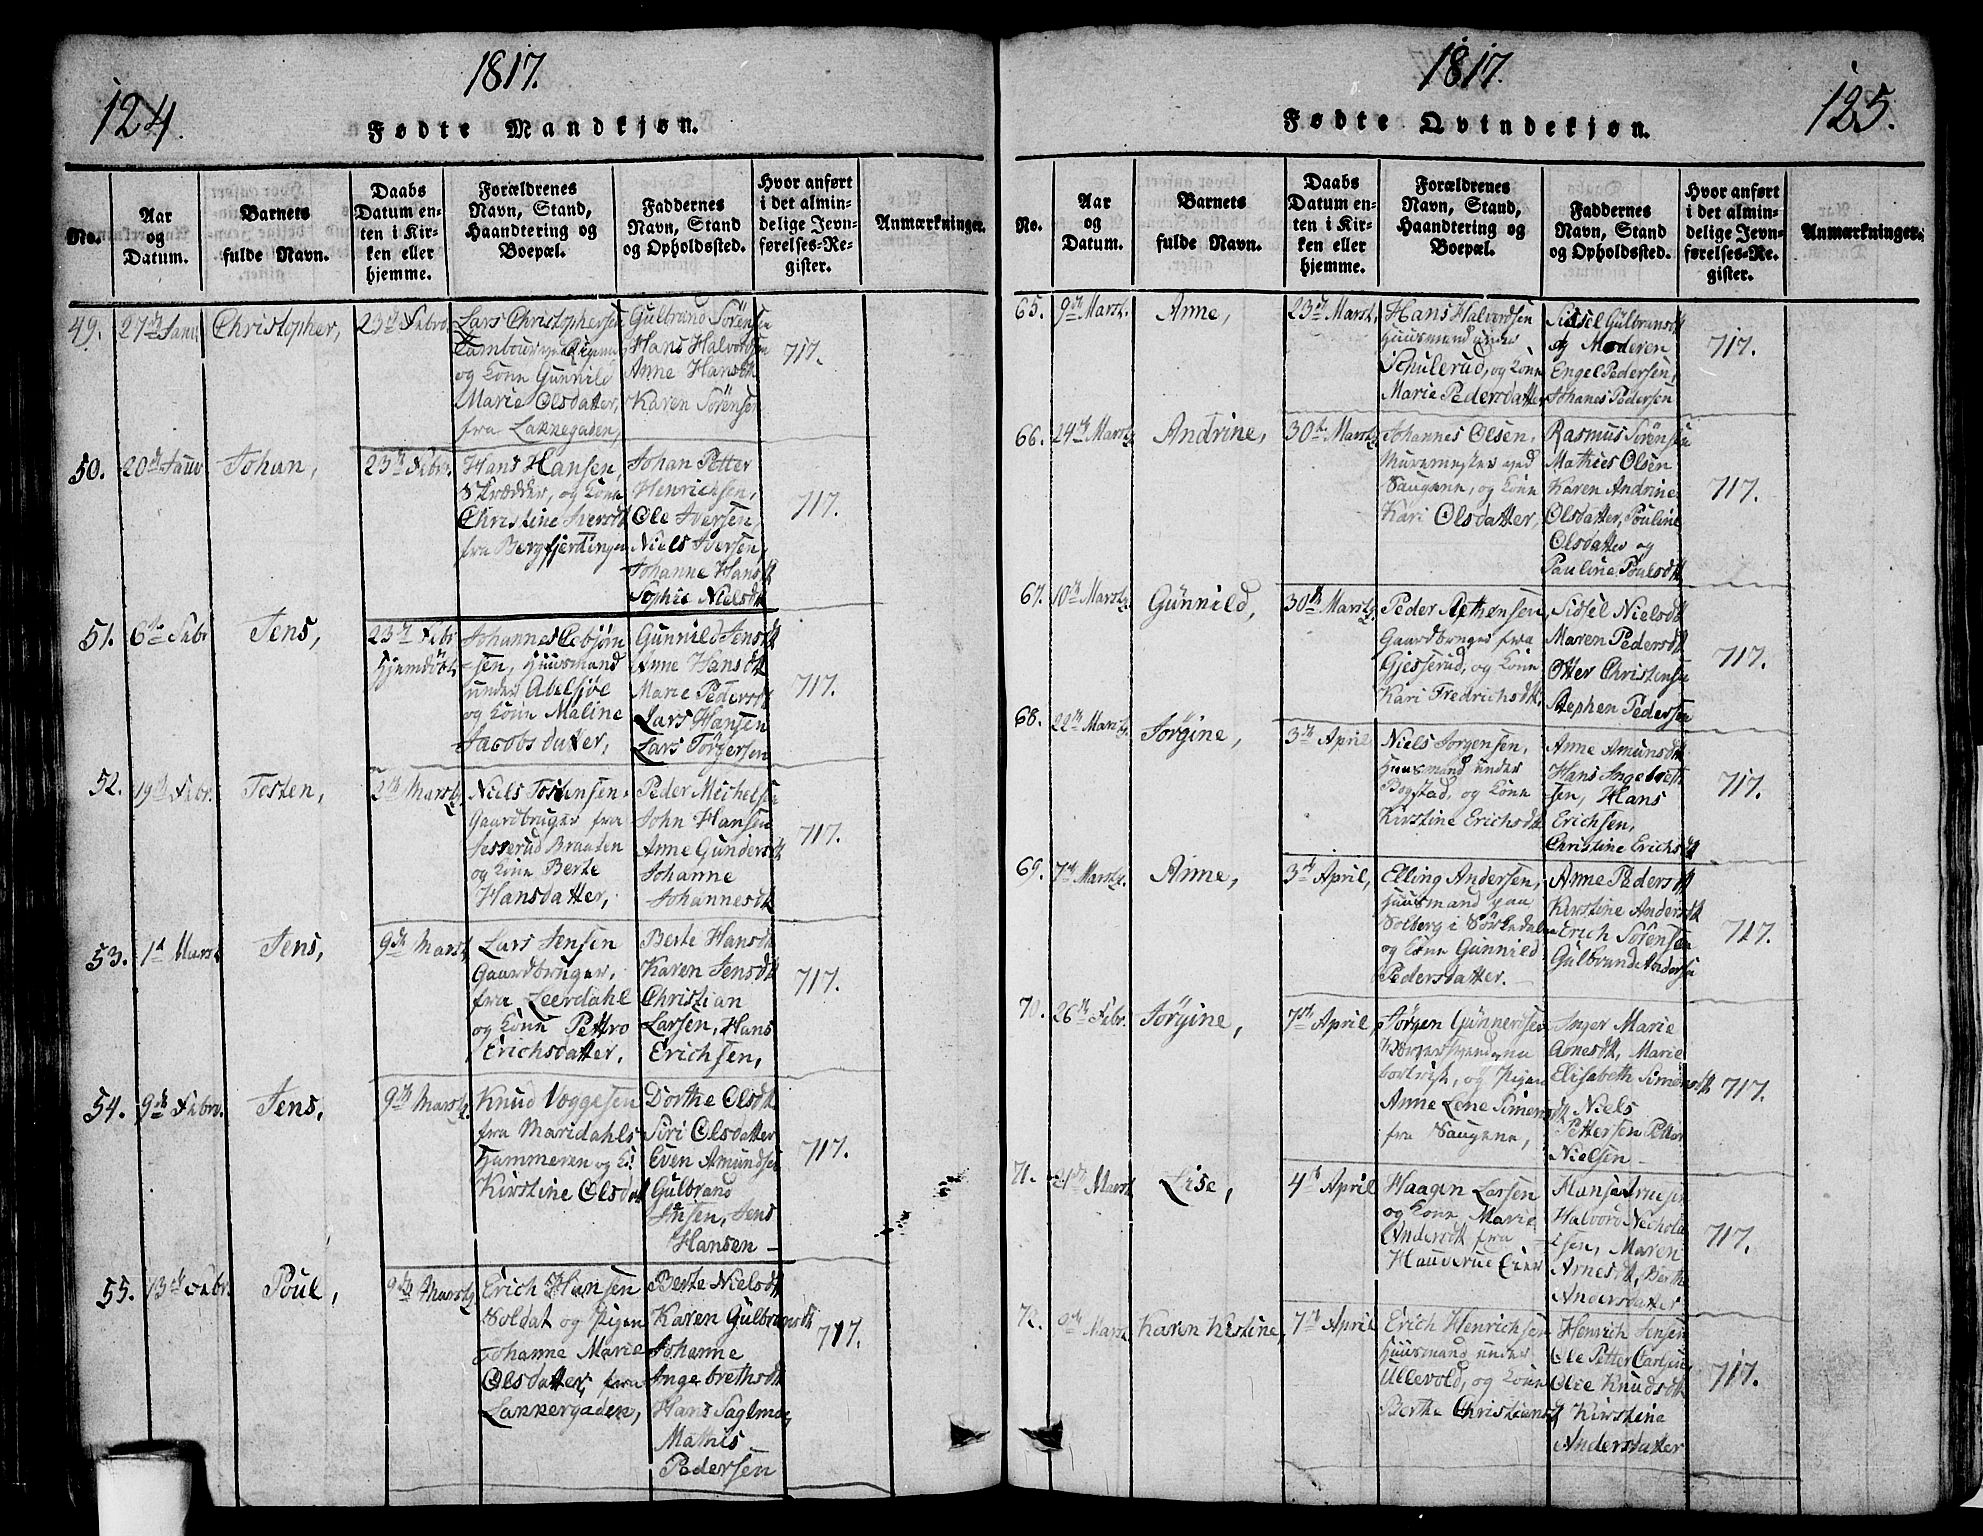 124.
1817.
Fødte Mandkjøn.
No.
Aar
og
Datum.
Barnets
fulde Navn.
Daabs
Datum en-
ten i Kir-
ken eller
hjemme.
Forældrenes
Navn, Stand,
Haandtering og
Boepæl.
Faddernes
Navn, Stand
og Opholdssted.
Hvor anført
i det almin-
delige Jevn-
førelses-Re-
gister.
Anmærkninger.
49.
27de Janv
Christopher,
23de Febr.
Lars Christophersen
Tambour
og Kone Gunnild
Marie Olsdatter,
fra Lakkegaden,
Gulbrand Sörensen
Hans Halvorsen
Anne Hansdt
Karen Sörensen
717.
50.
20de Janv
Johan,
23de Febr.
Hans Hansen,
Skrædder, og Kone
Christine Iversdt
fra Bergfjerdingen
Johan Petter
Henrichsen,
Ole Iversen,
Niels Iversen,
Johanne Hansdt
Sophie Nielsdt
717.
51.
6te Febr
Jens,
23de Febr
Hjemdöbt
Johannes Ebbjön
-sen, Huusmand
under Abelsöe
og Kone Maline
Jacobsdatter,
Gunnild Jensdt
Anne Hansdt
Marie Pedersdt
Lars Hansen
Lars Törgersen
717.
52.
19de Febr.
Tosten,
2de Martz
Niels Tostensen
Gaardbruger fra
Jesserud Braaten
og Kone Berte
Hansdatter,
Peder Michelsen
John Hansen
Anne Gundersdt
Johanne
Johannesdt
717.
53.
1ste Martz
Jens,
9de Martz
Lars Jensen
Gaardbruger,
fra Leerdahl
og Kone Pettro
Erichsdatter,
Berte Hansdt
Karen Jensdt
Christian
Larsen, Hans
Erichsen,
717.
54.
9de Febr.
Jens,
9de Martz.
Knud Væggesen
fra Maridahls
Hammeren og K:
Kirstine Olsdt
Dorthe Olsdt
Siri Olsdatter
Even Amundsen
Gulbrand
Jensen, Jens
Hansen -
717.
55.
13de Febr.
Poul,
9de Martz
Erich Hansen
Soldat og Pigen
Johanne Marie
Olsdatter, fra
Lakkergaden,
Berte Nielsdt
Karen Gulbransdt
Johanne
Ingebrethsdt
Hans
Mathis
Pedersen
717.
1817.
125.
Fødte Qvindekjøn.
No.
Aar
og
Datum.
Barnets
fulde Navn.
Daabs
Datum en-
ten i Kir-
ken eller
hjemme.
Forældrenes
Navn, Stand,
Haandtering og
Boepæl.
Faddernes
Navn, Stand
og Opholdssted.
Hvor anført
i det almin-
delige Jevn-
førelses-Re-
gister.
Anmærkninger.
65.
9de Martz.
Anne,
23de Martz.
Hans Halvorsen
Huusmand under
Schulerud, og Kone
Marie Pedersdatter
Sidsel Gulbransdt
og Moderen
Engel Pedersen,
Johanes Pedersen
717.
66.
24de Martz
Andrine,
30te Martz
Johannes Olsen,
Muremester ved
Saugene, og Kone
Kari Olsdatter,
Rasmus Sörensen
Mathies Olsen
Karen Andrine
Olsdatter, Pouline
Olsdatter og
Pauline Poulsdt
717.
67.
10de Martz.
Günnild,
30te Martz
Peder
Gaardbruger fra
Gjesserud, og Kone
Kari Fredrichsdt.
Sidsel Nielsdt
Maren Pedersdt
Otter Christensen
Stephen Pedersen
717.
68.
22de Martz.
Jörgine,
3de April
Niels Jorgensen,
Huusmand under
Bogstad, og Kone
Kirstine Erichsdt
Anne Amunsdt
Hans Ingebreth
-sen, Hans
Erichsen,
Christine Erichsdt
717.
69.
7de Martz.
Anne,
3de April,
Elling Andersen,
Huusmand paa
Solberg i Sörkedalen
og Kone Gunnild
Pedersdatter.
Anne Pedersdt
Kirstine Andersdt
Erich Sörensen
Gulbrand Andersen
717.
70.
26de Febr.
Jörgine,
7de April,
Jörgen Günnersen
bortreist, og Pigen
Anne Lene Simensdt
fra Saugene,
Inger Marie
Arnesdt, Marie
Elisabeth Simonsdt
Niels
Pettersen Petter
Nielsen -
717.
71.
21de Martz
Lise,
4de April
Haagen Larsen
og Kone Marie
Andersdt fra
Hans
Halvord Nichola
-isen, Maren
Arnesdt, Berthe
Andersdatter
717.
72.
9de Martz
Karen Kistine,
7de April
Erich Henrichsen
Huusmand under
Ullevold, og Kone
Berthe Christiansdt
Henrich Jensen
Ole Petter Carlsen
Olie Knudsdt
Kirstine
Andersdatter
717.